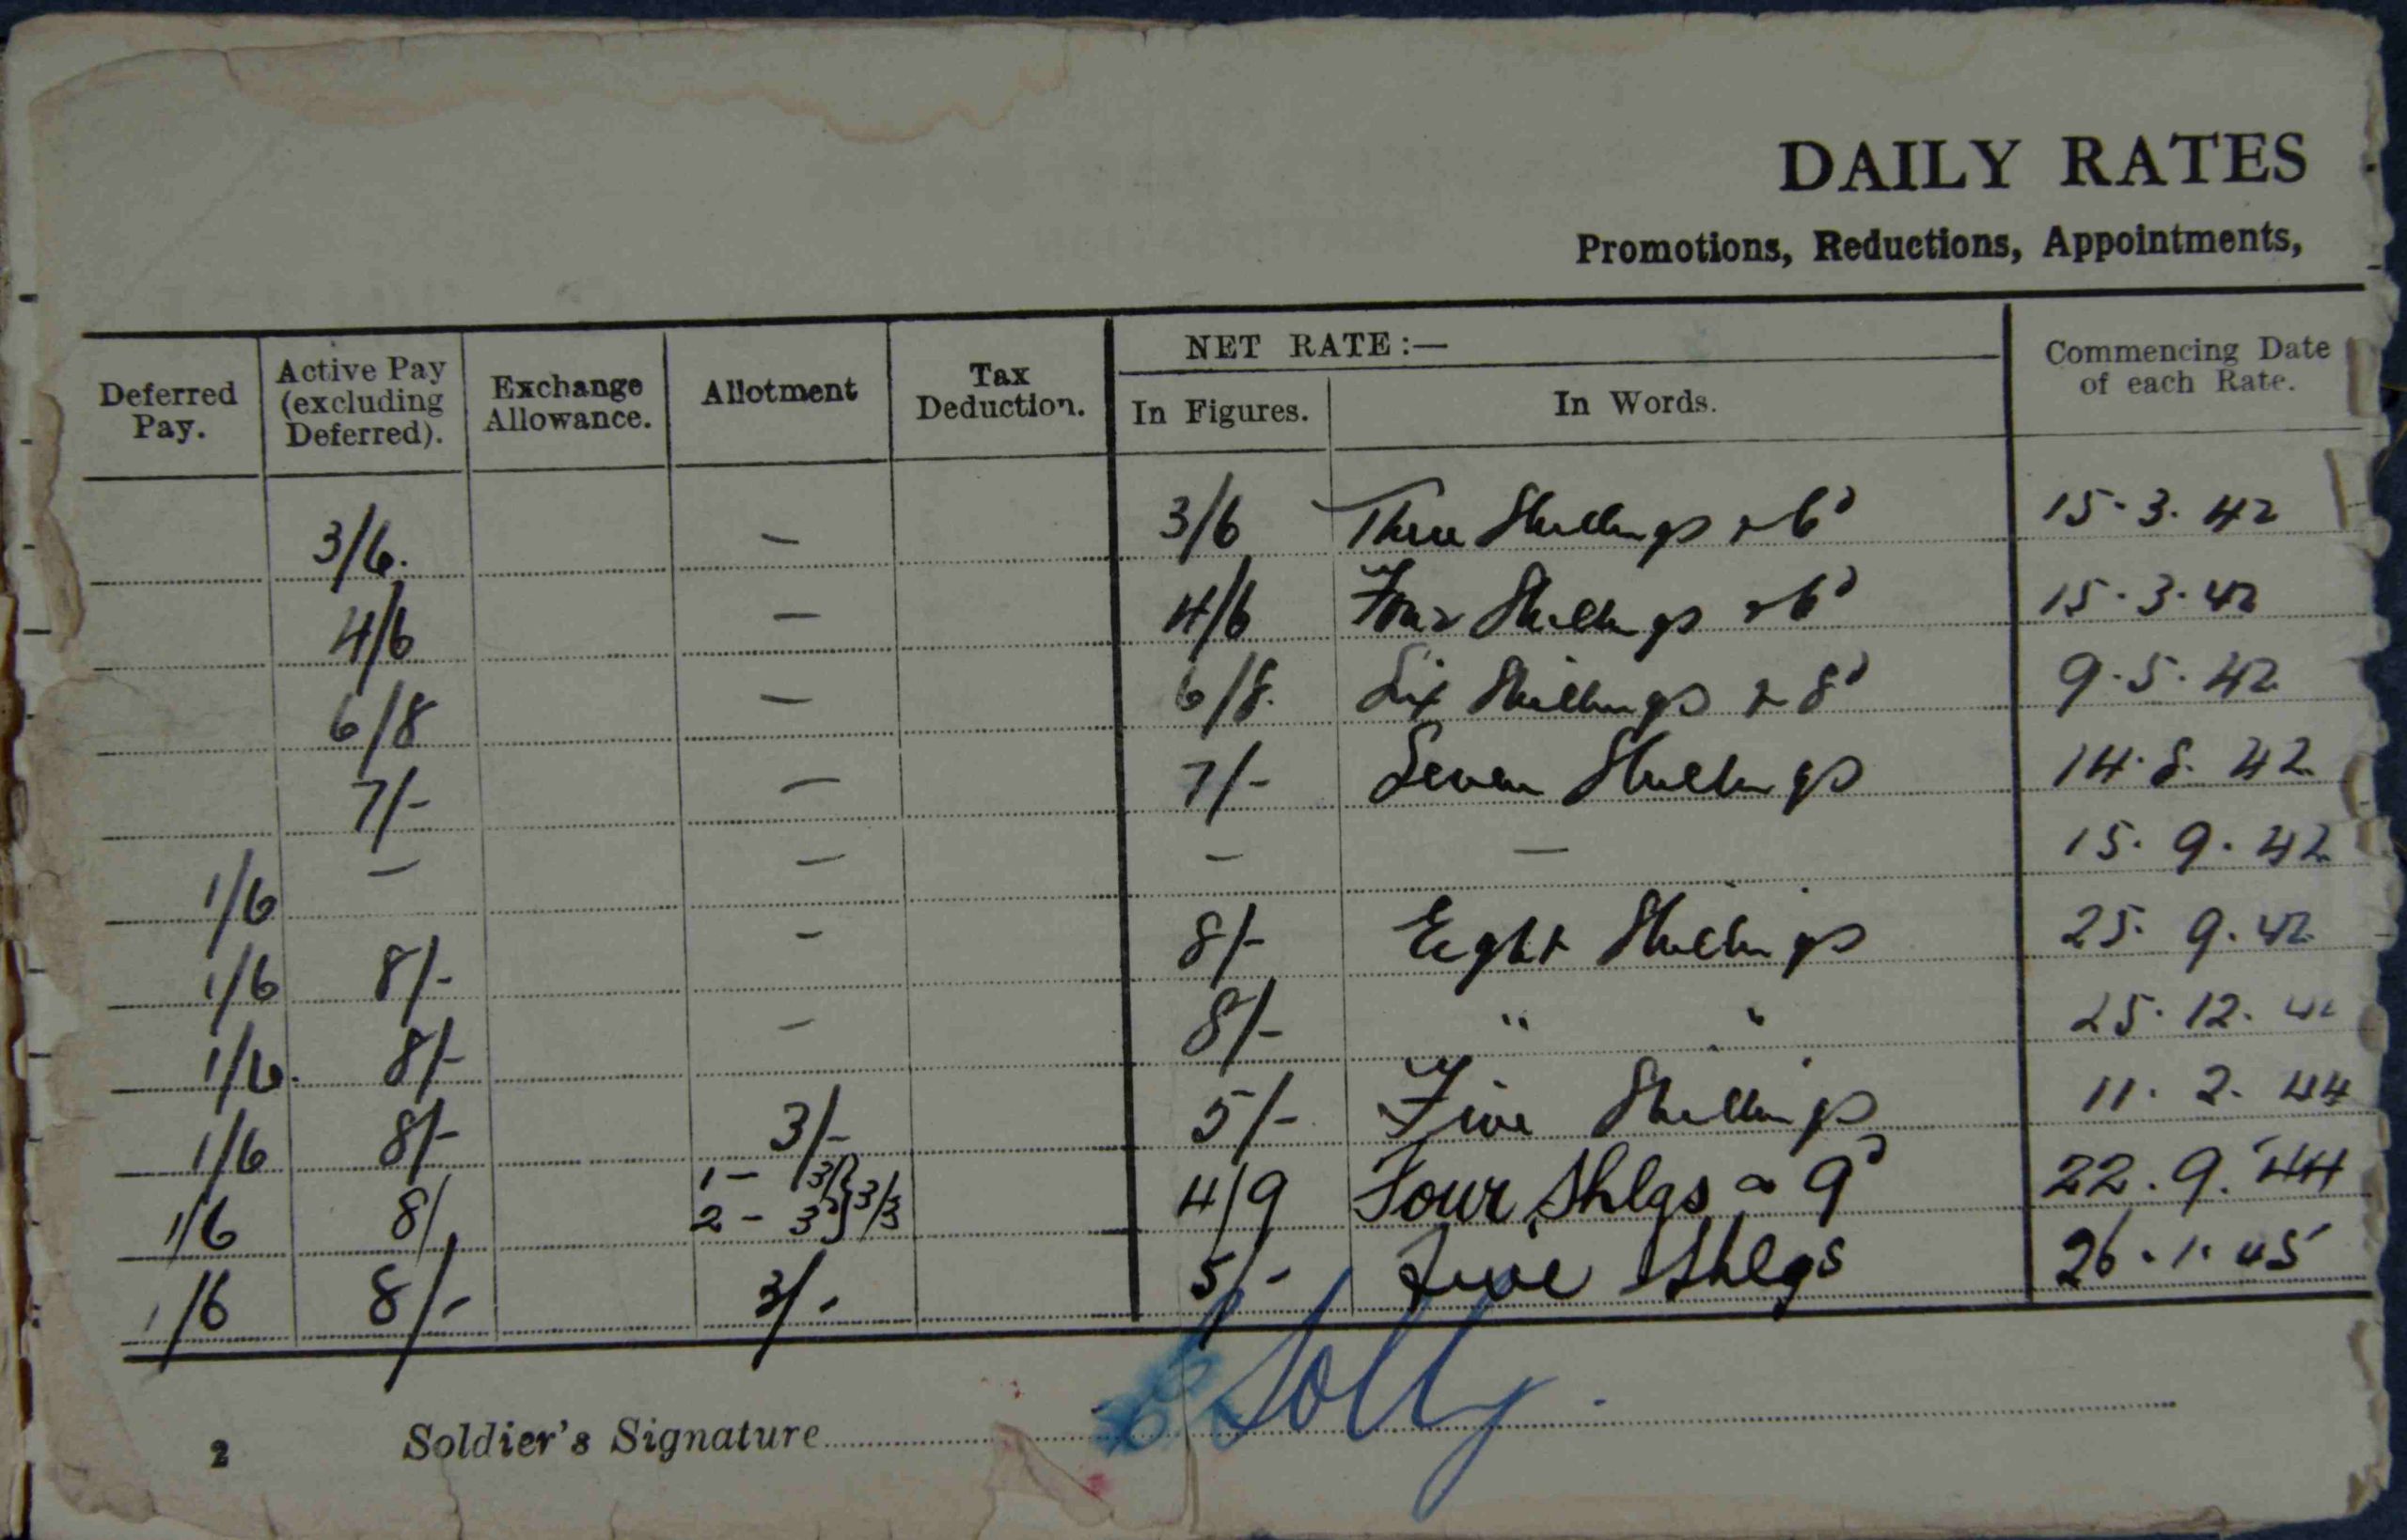 DAILY RATES
Promotions, Reductions, Appointments,
Deferred Pay. Active Pay (excluding Deferred). Exchange Allowance. Allotment Tax Deduction. NET RATE:— In Figures. In Words. Commencing Date of each Rate.
3/6. — 3/6 Three Shillings & 6d 15.3.42
4/6 — 4/6 Four Shillings & 6d 15.3.42
6/8 — 6/8. Six Shillings & 8d 9.5.42
7/- — 7/- Seven Shillings 14.8.42
1/6 — — — — 15.9.42
1/6 8/- — 8/- Eight Shillings 25.9.42
1/6. 8/- — 8/- " " 25.12.42
1/6 8/- 3/- 5/- Five Shillings 11.2.44
1/6 8/ 1 - 3/ 2 - 3d } 3/3 4/9 Four Shlgs & 9d 22.9.44
1/6 8/- 3/- 5/- Five Shlgs 26.1.45
2 Soldier's Signature